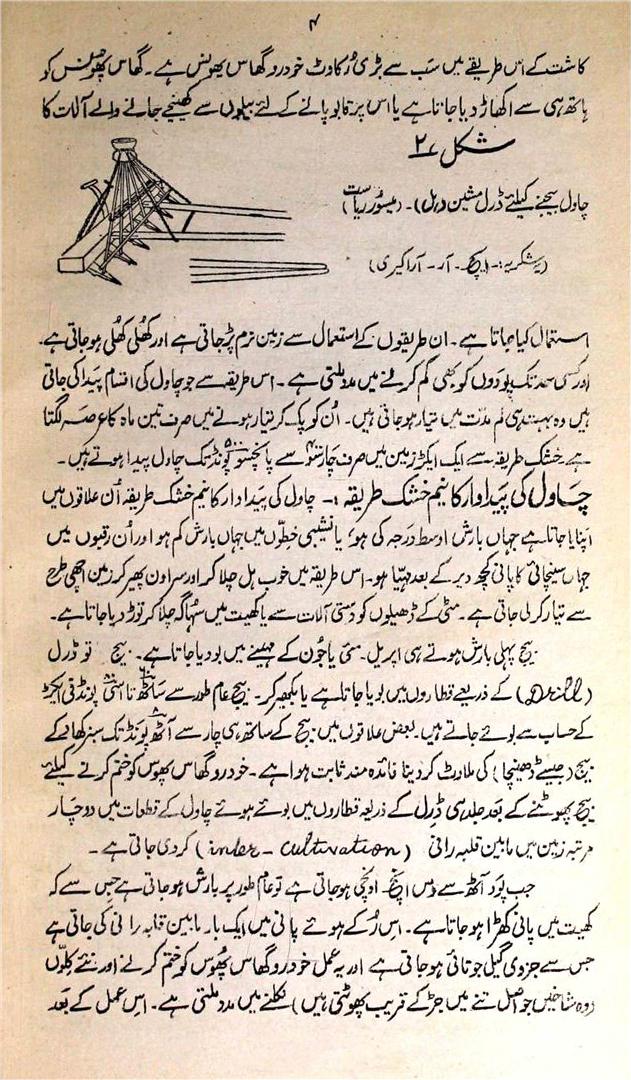 ۴
کاشت کے اس طریقے میں سب سے بڑی رُکاوٹ خودرو گھاس پھونس ہے۔ گھاس پھونس کو
ہاتھ ہی سے اکھاڑ دیا جاتا ہے یا اس پر قابو پانے کے لئے بیلوں سے کھینچے جانے والے آلات کا
شکل ۲
چاول بیجنے کیلئے ڈرل مشین (ہل)۔ (میسور ریاست)
(بشکریہ:- ایچ۔ آر۔ آراکیری)
استعمال کیا جاتا ہے۔ ان طریقوں کے استعمال سے زمین نرم پڑ جاتی ہے اور کھلی کھلی ہو جاتی ہے۔
اور کسی حد تک پودوں کو بھی کم کرنے میں مدد ملتی ہے۔ اس طریقہ سے جو چاول کی اقسام پیدا کی جاتی
ہیں وہ بہت ہی کم مدّت میں تیار ہو جاتی ہیں۔ اُن کو پک کر تیار ہونے میں صرف تین ماہ کا عرصہ لگتا
ہے۔ خشک طریقہ سے ایک ایکڑ زمین میں صرف چار سو سے پانچسو پونڈ تک چاول پیدا ہوتے ہیں۔
چاول کی پیداوار کا نیم خشک طریقہ :- چاول کی پیداوار کا نیم خشک طریقہ اُن علاقوں میں
اپنایا جاتا ہے جہاں بارش اوسط درجہ کی ہو یا نشیبی خطّوں میں جہاں بارش کم ہو اور اُن رقبوں میں
جہاں سینچائی کا پانی کچھ دیر کے بعد مہیّا ہو۔ اس طریقہ میں خوب ہل چلا کر اور سراون پھیر کر زمین اچھی طرح
سے تیار کر لی جاتی ہے۔ مٹی کے ڈھیلوں کو دستی آلات سے یا کھیت میں سہاگہ چلا کر توڑ دیا جاتا ہے۔
بیج پہلی بارش ہوتے ہی اپریل۔ مئی یا جون کے مہینے میں بو دیا جاتا ہے۔ بیج تو ڈرل
(Drill) کے ذریعے قطاروں میں بویا جاتا ہے یا بکھیر کر۔ بیج عام طور سے ساٹھ ۶۰ تا اسّی ۸۰ پونڈ فی ایکڑ
کے حساب سے بوئے جاتے ہیں۔ بعض علاقوں میں بیج کے ساتھ ہی چار سے آٹھ ۸ پونڈ تک سبز کھاد کے
بیج (جیسے ڈھینچا) کی ملاوٹ کر دینا فائدہ مند ثابت ہوا ہے۔ خودرو گھاس پھوس کو ختم کرنے کیلئے
بیج پھوٹنے کے بعد جلد ہی ڈرل کے ذریعہ قطاروں میں بوئے ہوئے چاول کے قطعات میں دو چار
مرتبہ زمین میں مابین قلبہ رانی (inter-cultivation) کر دی جاتی ہے۔
جب پود آٹھ سے دس اِنچ اونچی ہو جاتی ہے تو عام طور پر بارش ہو جاتی ہے جس سے کہ
کھیت میں پانی کھڑا ہو جاتا ہے۔ اِس رُکے ہوئے پانی میں ایک بار مابین قلبہ رانی کی جاتی ہے
جس سے جزوی گیلی جوتائی ہو جاتی ہے اور یہ عمل خودرو گھاس پھوس کو ختم کرنے اور نئے کِلّوں
(وہ شاخیں جو اصل تنے میں جڑ کے قریب پھوٹتی ہیں) نکلنے میں مدد ملتی ہے۔ اس عمل کے بعد